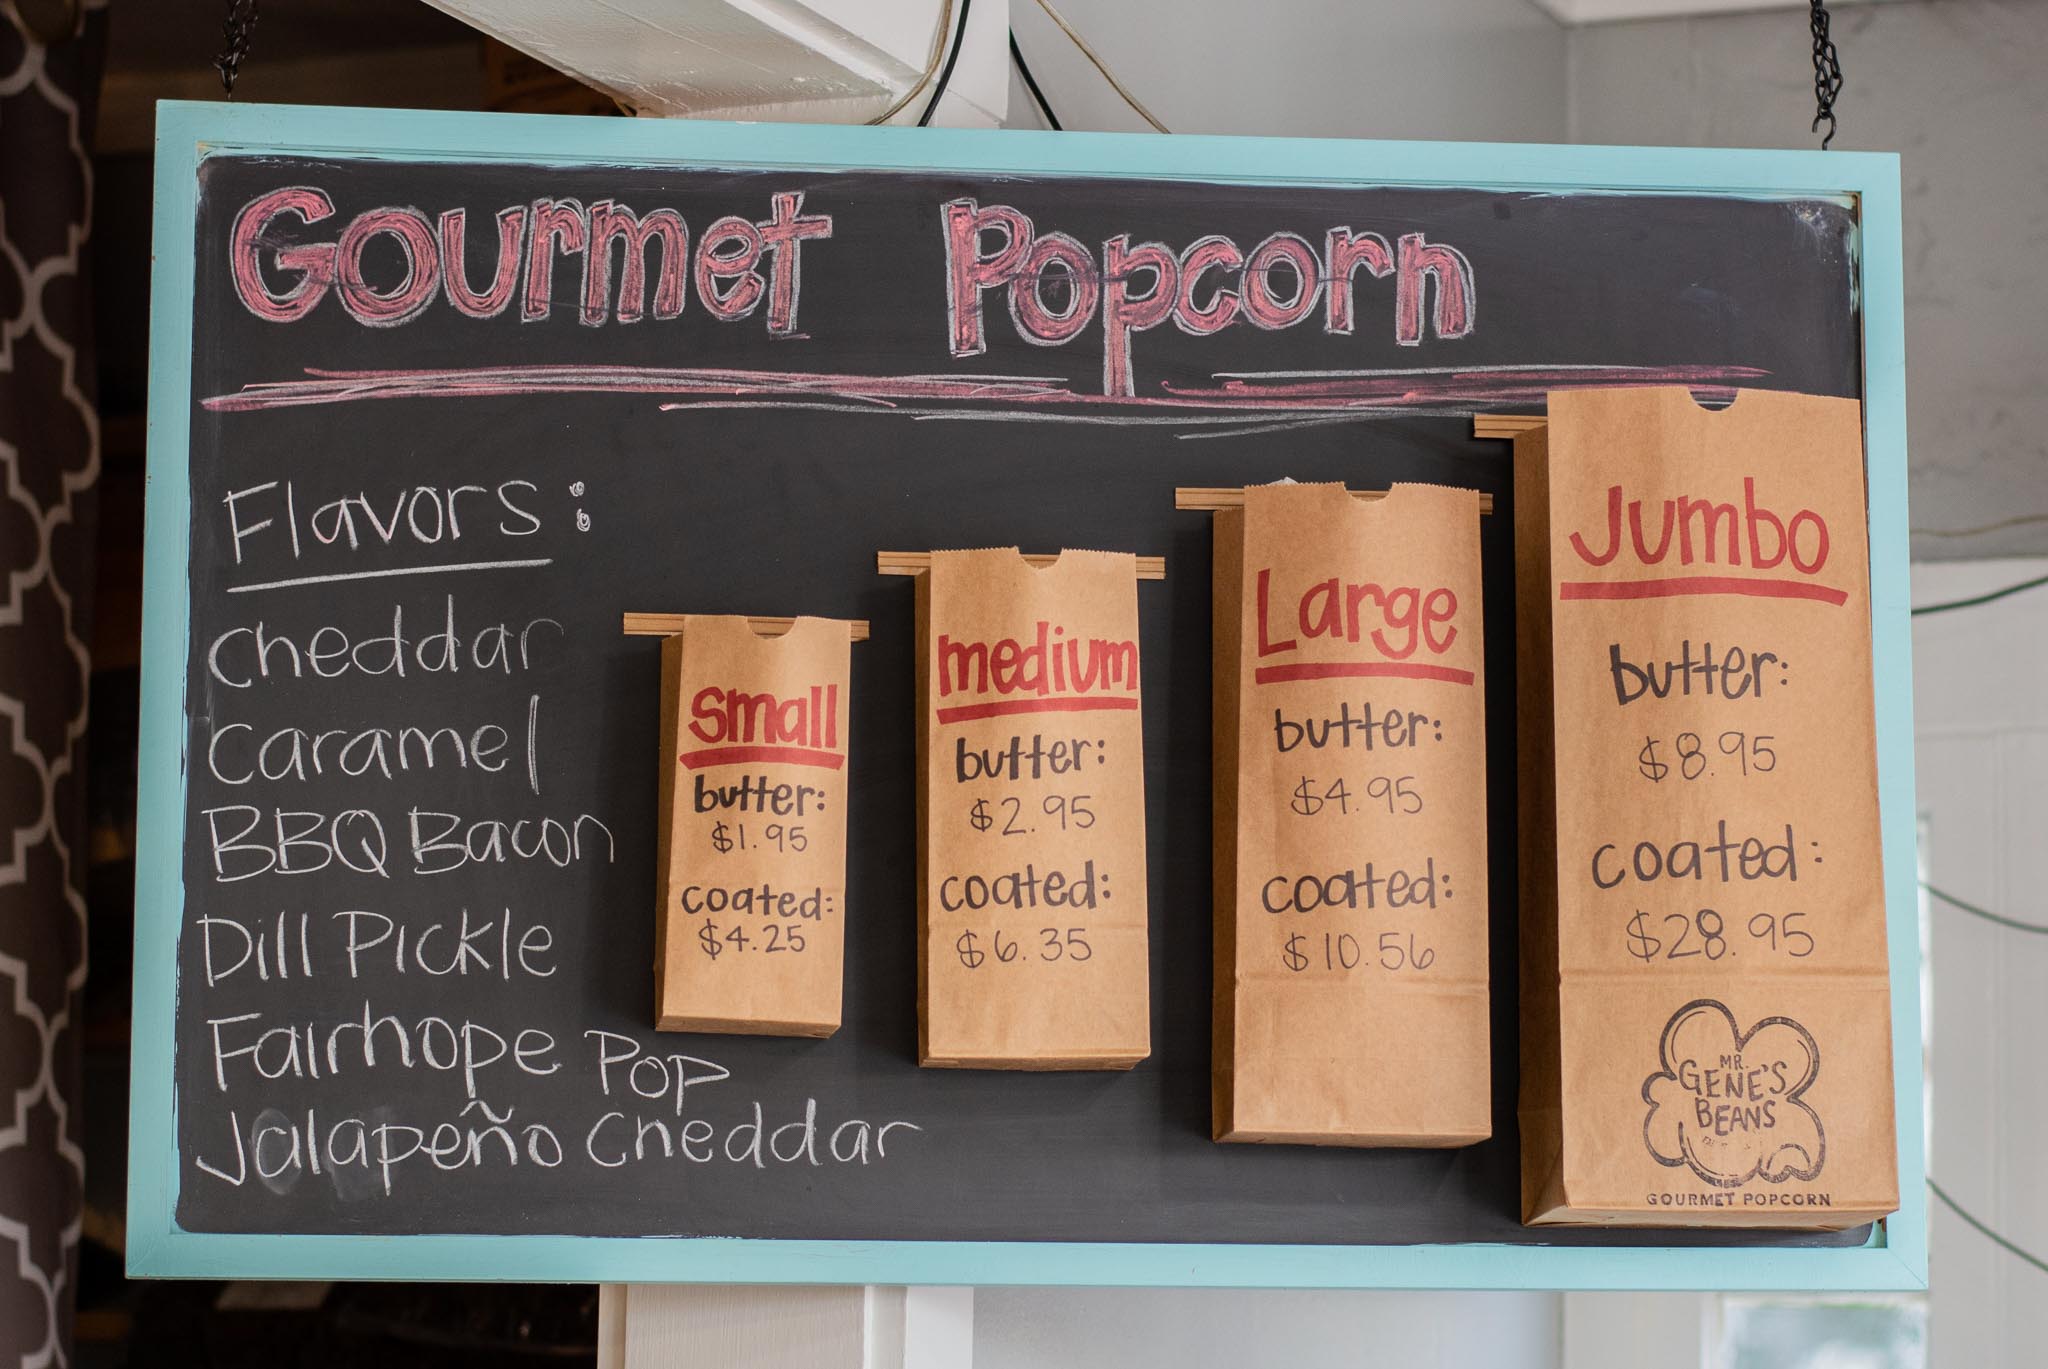 Gourmet Popcorn
Flavors:
Cheddar
Caramel
BBQ Bacon
Dill Pickle
Fairhope Pop
Jalapeño Cheddar
Small
butter:
$1.95
coated:
$4.25
medium
butter:
$2.95
coated:
$6.35
Large
butter:
$4.95
coated:
$10.56
Jumbo
butter:
$8.95
coated:
$28.95
MR.
GENE'S
BEANS
GOURMET POPCORN